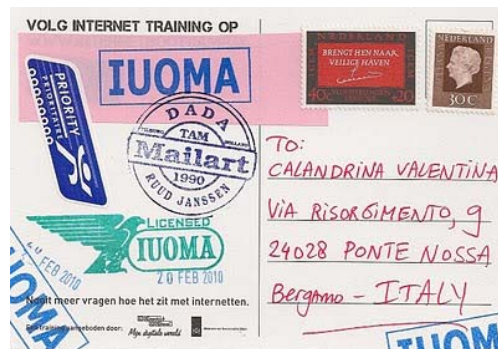 VOLG INTERNET TRAINING OP
PRIORITY
PRIORITAIRE
IUOMA
DADA
TILBURG TAM HOLLAND
Mailart
1990
RUUD JANSSEN
LICENSED
IUOMA
20 FEB 2010
FEB 2010
IUOMA
Nooit meer vragen hoe het zit met internetten.
Een training aangeboden door:
Mijn digitale wereld
NEDERLAND
BRENGT HEN NAAR
VEILIGE HAVEN
40c
+20
NEDERLAND
30C
TO:
CALANDRINA VALENTINA
VIA RISORGIMENTO, 9
24028 PONTE NOSSA
Bergamo - ITALY
IUOM